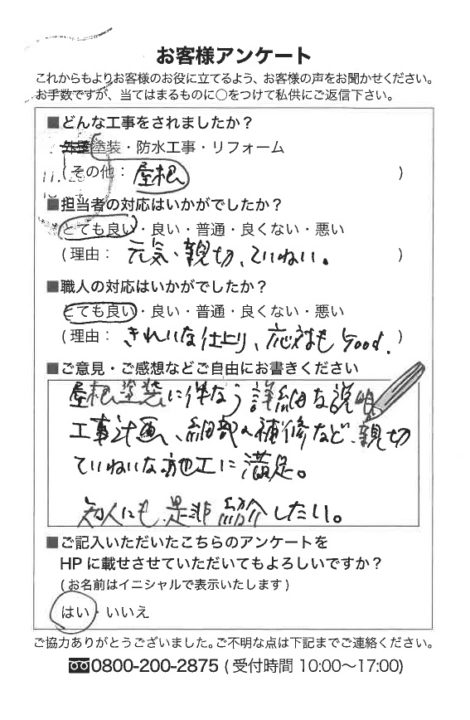 お客様アンケート
これからもよりお客様のお役に立てるよう、お客様の声をお聞かせください。
お手数ですが、当てはまるものに○をつけて私供にご返信下さい。
■どんな工事をされましたか？
外壁塗装・防水工事・リフォーム
(その他： 屋根 )
■担当者の対応はいかがでしたか？
とても良い・良い・普通・良くない・悪い
(理由： 元気、親切、ていねい。 )
■職人の対応はいかがでしたか？
とても良い・良い・普通・良くない・悪い
(理由： きれいな仕上り、応対もGood. )
■ご意見・ご感想などご自由にお書きください
屋根塗装に伴なう詳細な説明
工事計画、細部の補修など、親切
ていねいな施工に満足。
知人にも是非紹介したい。
■ご記入いただいたこちらのアンケートを
HPに載せさせていただいてもよろしいですか？
(お名前はイニシャルで表示いたします)
はい・いいえ
ご協力ありがとうございました。ご不明な点は下記までご連絡ください。
0800-200-2875 (受付時間 10:00〜17:00)